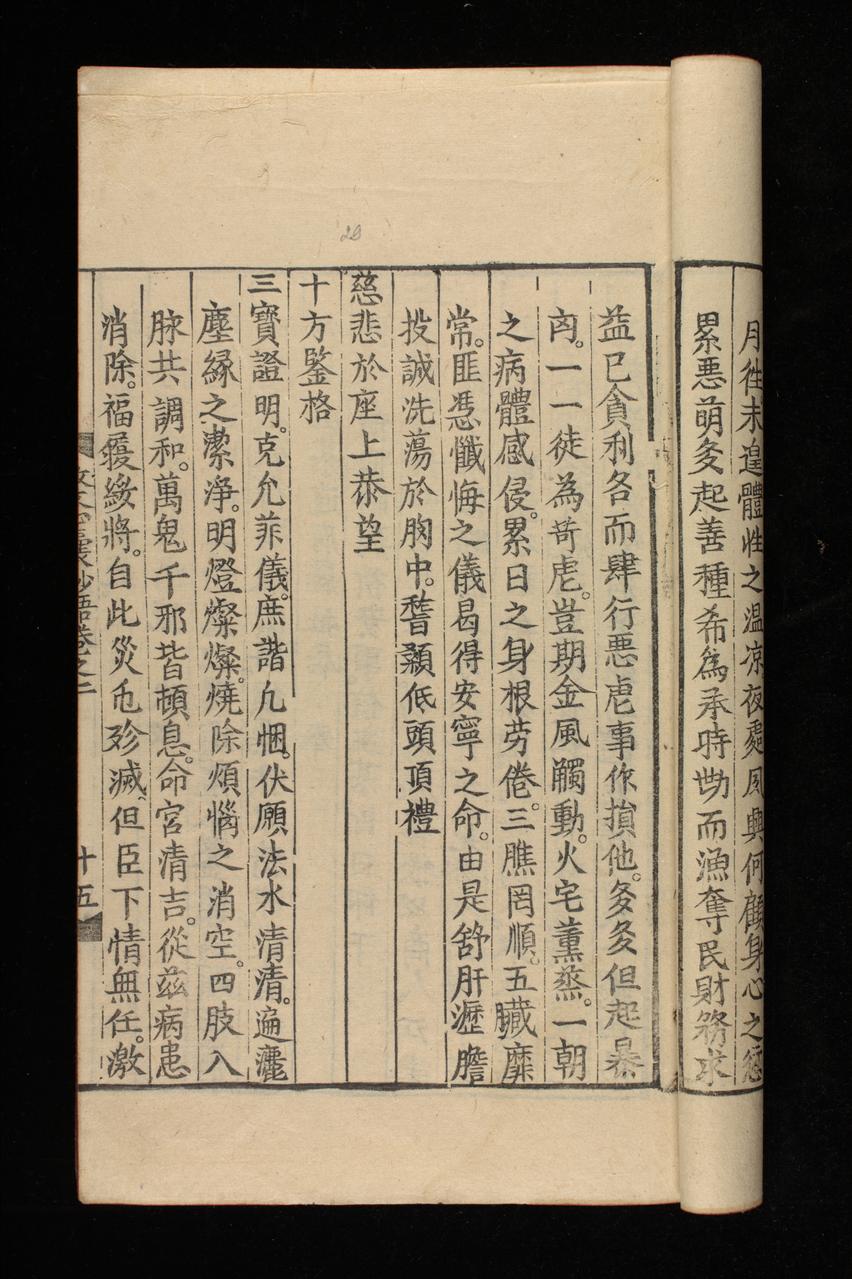 月徃未遑體性之温凉夜處夙興何顧身心之愆
累悪萌㕛起善種希為承時㔟而漁奪民財務求
益已貪利各而肆行悪虐事作損他。㕛㕛但起暴
㐫。一一徒為苛虐。豈期金風觸動。火宅薰蒸。一朝
之病體感侵。累日之身根劳倦。三膲罔順。五臟靡
常。匪憑懺悔之儀曷得安寧之命。由是舒肝瀝膽
投誠洗蕩於胸中。稽顙低頭頂禮
慈悲於座上恭望
十方鑒格
三寶證明。克允菲儀。庶諧凢悃。伏願法水清清。遍灑
塵縁之潔净。明燈燦燦。燒除煩惱之消空。四肢八
脉共調和。萬鬼千邪皆頓息。命宮清吉。從兹病患
消除。福履綏將。自此災危殄滅。但臣下情無任。激
十五
29